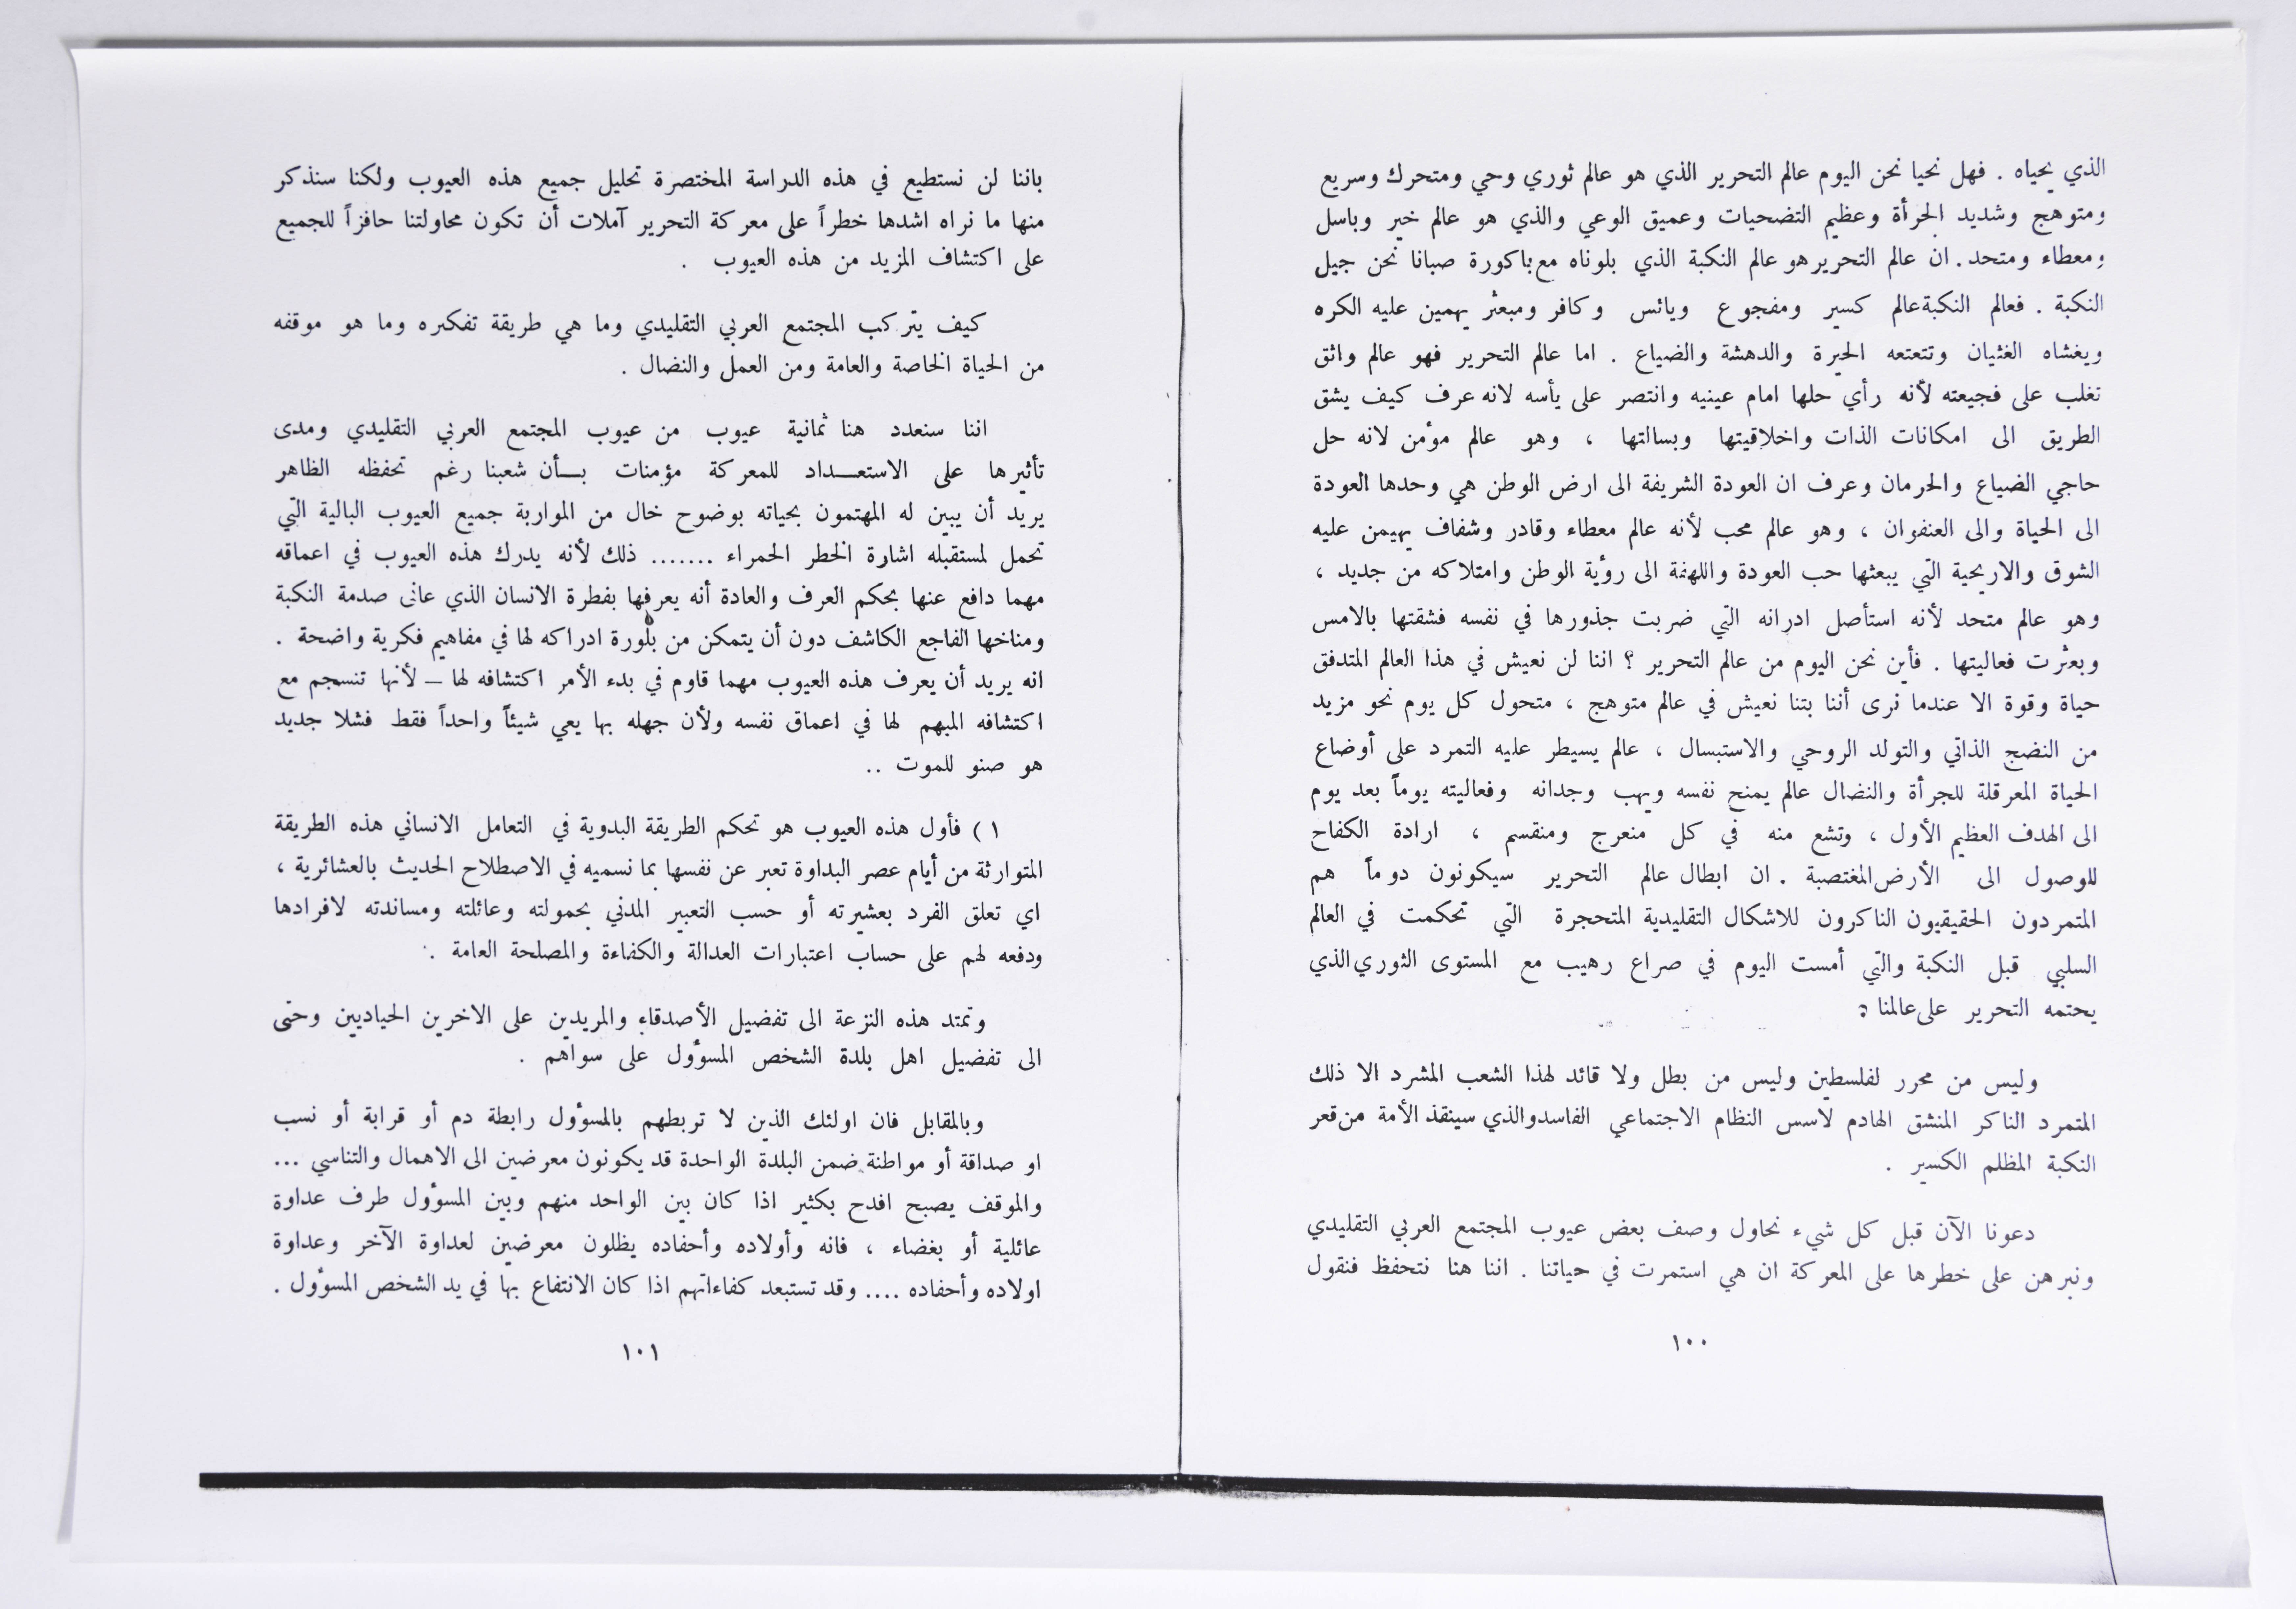 الذي يحياه . فهل نحيا نحن اليوم عالم التحرير الذي هو عالم ثوري وحي ومتحرك وسريع
ومتوهج وشديد الجرأة وعظيم التضحيات وعميق الوعي والذي هو عالم خير وباسل
ومعطاء ومتحد . ان عالم التحرير هو عالم النكبة الذي بلوناه مع باكورة صبانا نحن جيل
النكبة . فعالم النكبة عالم كسير ومفجوع ويائس وكافر ومبعثر يهمين عليه الكره
ويغشاه الغثيان وتتعتعه الحيرة والدهشة والضياع . اما عالم التحرير فهو عالم واثق
تغلب على فجيعته لأنه رأي حلها امام عينيه وانتصر على يأسه لانه عرف كيف يشق
الطريق الى امكانات الذات واخلاقيتها وبسالتها ، وهو عالم مؤمن لانه حل
حاجي الضياع والحرمان وعرف ان العودة الشريفة الى ارض الوطن هي وحدها العودة
الى الحياة والى العنفوان ، وهو عالم محب لأنه عالم معطاء وقادر وشفاف يهيمن عليه
الشوق والاريحية التي يبعثها حب العودة واللهفة الى رؤية الوطن وامتلاكه من جديد ،
وهو عالم متحد لأنه استأصل ادرانه التي ضربت جذورها في نفسه فشقتها بالامس
وبعثرت فعاليتها . فأين نحن اليوم من عالم التحرير ؟ اننا لن نعيش في هذا العالم المتدفق
حياة وقوة الا عندما نرى أننا بتنا نعيش في عالم متوهج ، متحول كل يوم نحو مزيد
من النضج الذاتي والتولد الروحي والاستبسال ، عالم يسيطر عليه التمرد على أوضاع
الحياة المعرقلة للجرأة والنضال عالم يمنح نفسه ويهب وجدانه وفعاليته يوماً بعد يوم
الى الهدف العظيم الأول ، وتشع منه في كل منعرج ومنقسم ، ارادة الكفاح
للوصول الى الأرض المغتصبة . ان ابطال عالم التحرير سيكونون دوماً هم
المتمردون الحقيقيون الناكرون للاشكال التقليدية المتحجرة التي تحكمت في العالم
السلبي قبل النكبة والتي أمست اليوم في صراع رهيب مع المستوى الثوري الذي
يحتمه التحرير على عالمنا :
وليس من محرر لفلسطين وليس من بطل ولا قائد لهذا الشعب المشرد الا ذلك
المتمرد الناكر المنشق الهادم لاسس النظام الاجتماعي الفاسد والذي سينقذ الأمة من قعر
النكبة المظلم الكسير .
دعونا الآن قبل كل شيء نحاول وصف بعض عيوب المجتمع العربي التقليدي
ونبرهن على خطرها على المعركة ان هي استمرت في حياتنا . اننا هنا نتحفظ فنقول
١٠٠
باننا لن نستطيع في هذه الدراسة المختصرة تحليل جميع هذه العيوب ولكنا سنذكر
منها ما نراه اشدها خطراً على معركة التحرير آملات أن تكون محاولتنا حافزاً للجميع
على اكتشاف المزيد من هذه العيوب .
كيف يتركب المجتمع العربي التقليدي وما هي طريقة تفكيره وما هو موقفه
من الحياة الخاصة والعامة ومن العمل والنضال .
اننا سنعدد هنا ثمانية عيوب من عيوب المجتمع العربي التقليدي ومدى
تأثيرها على الاستعـداد للمعركة مؤمنات بـأن شعبنا رغم تحفظه الظاهر
يريد أن يبين له المهتمون بحياته بوضوح خال من المواربة جميع العيوب البالية التي
تحمل لمستقبله اشارة الخطر الحمراء ....... ذلك لأنه يدرك هذه العيوب في اعماقه
مهما دافع عنها بحكم العرف والعادة أنه يعرفها بفطرة الانسان الذي عانى صدمة النكبة
ومناخها الفاجع الكاشف دون أن يتمكن من بلورة ادراكه لها في مفاهيم فكرية واضحة .
انه يريد أن يعرف هذه العيوب مهما قاوم في بدء الأمر اكتشافه لها – لأنها تنسجم مع
اكتشافه المبهم لها في اعماق نفسه ولأن جهله بها يعي شيئاً واحداً فقط فشلا جديد
هو صنو للموت ..
١ ) فأول هذه العيوب هو تحكم الطريقة البدوية في التعامل الانساني هذه الطريقة
المتوارثة من أيام عصر البداوة تعبر عن نفسها بما نسميه في الاصطلاح الحديث بالعشائرية ،
اي تعلق الفرد بعشيرته أو حسب التعبير المدني بحمولته وعائلته ومساندته لافرادها
ودفعه لهم على حساب اعتبارات العدالة والكفاءة والمصلحة العامة .
وتمتد هذه النزعة الى تفضيل الأصدقاء والمريدين على الاخرين الحياديين وحتى
الى تفضيل اهل بلدة الشخص المسؤول على سواهم .
وبالمقابل فان اولئك الذين لا تربطهم بالمسؤول رابطة دم أو قرابة أو نسب
او صداقة أو مواطنة ضمن البلدة الواحدة قد يكونون معرضين الى الاهمال والتناسي ...
والموقف يصبح افدح بكثير اذا كان بين الواحد منهم وبين المسؤول طرف عداوة
عائلية أو بغضاء ، فانه وأولاده وأحفاده يظلون معرضين لعداوة الآخر وعداوة
اولاده وأحفاده .... وقد تستبعد كفاءاتهم اذا كان الانتفاع بها في يد الشخص المسؤول .
١٠١